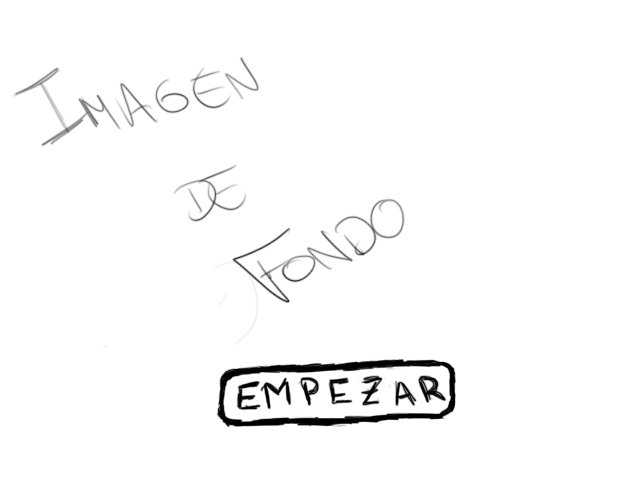 IMAGEN
DE
FONDO
EMPEZAR